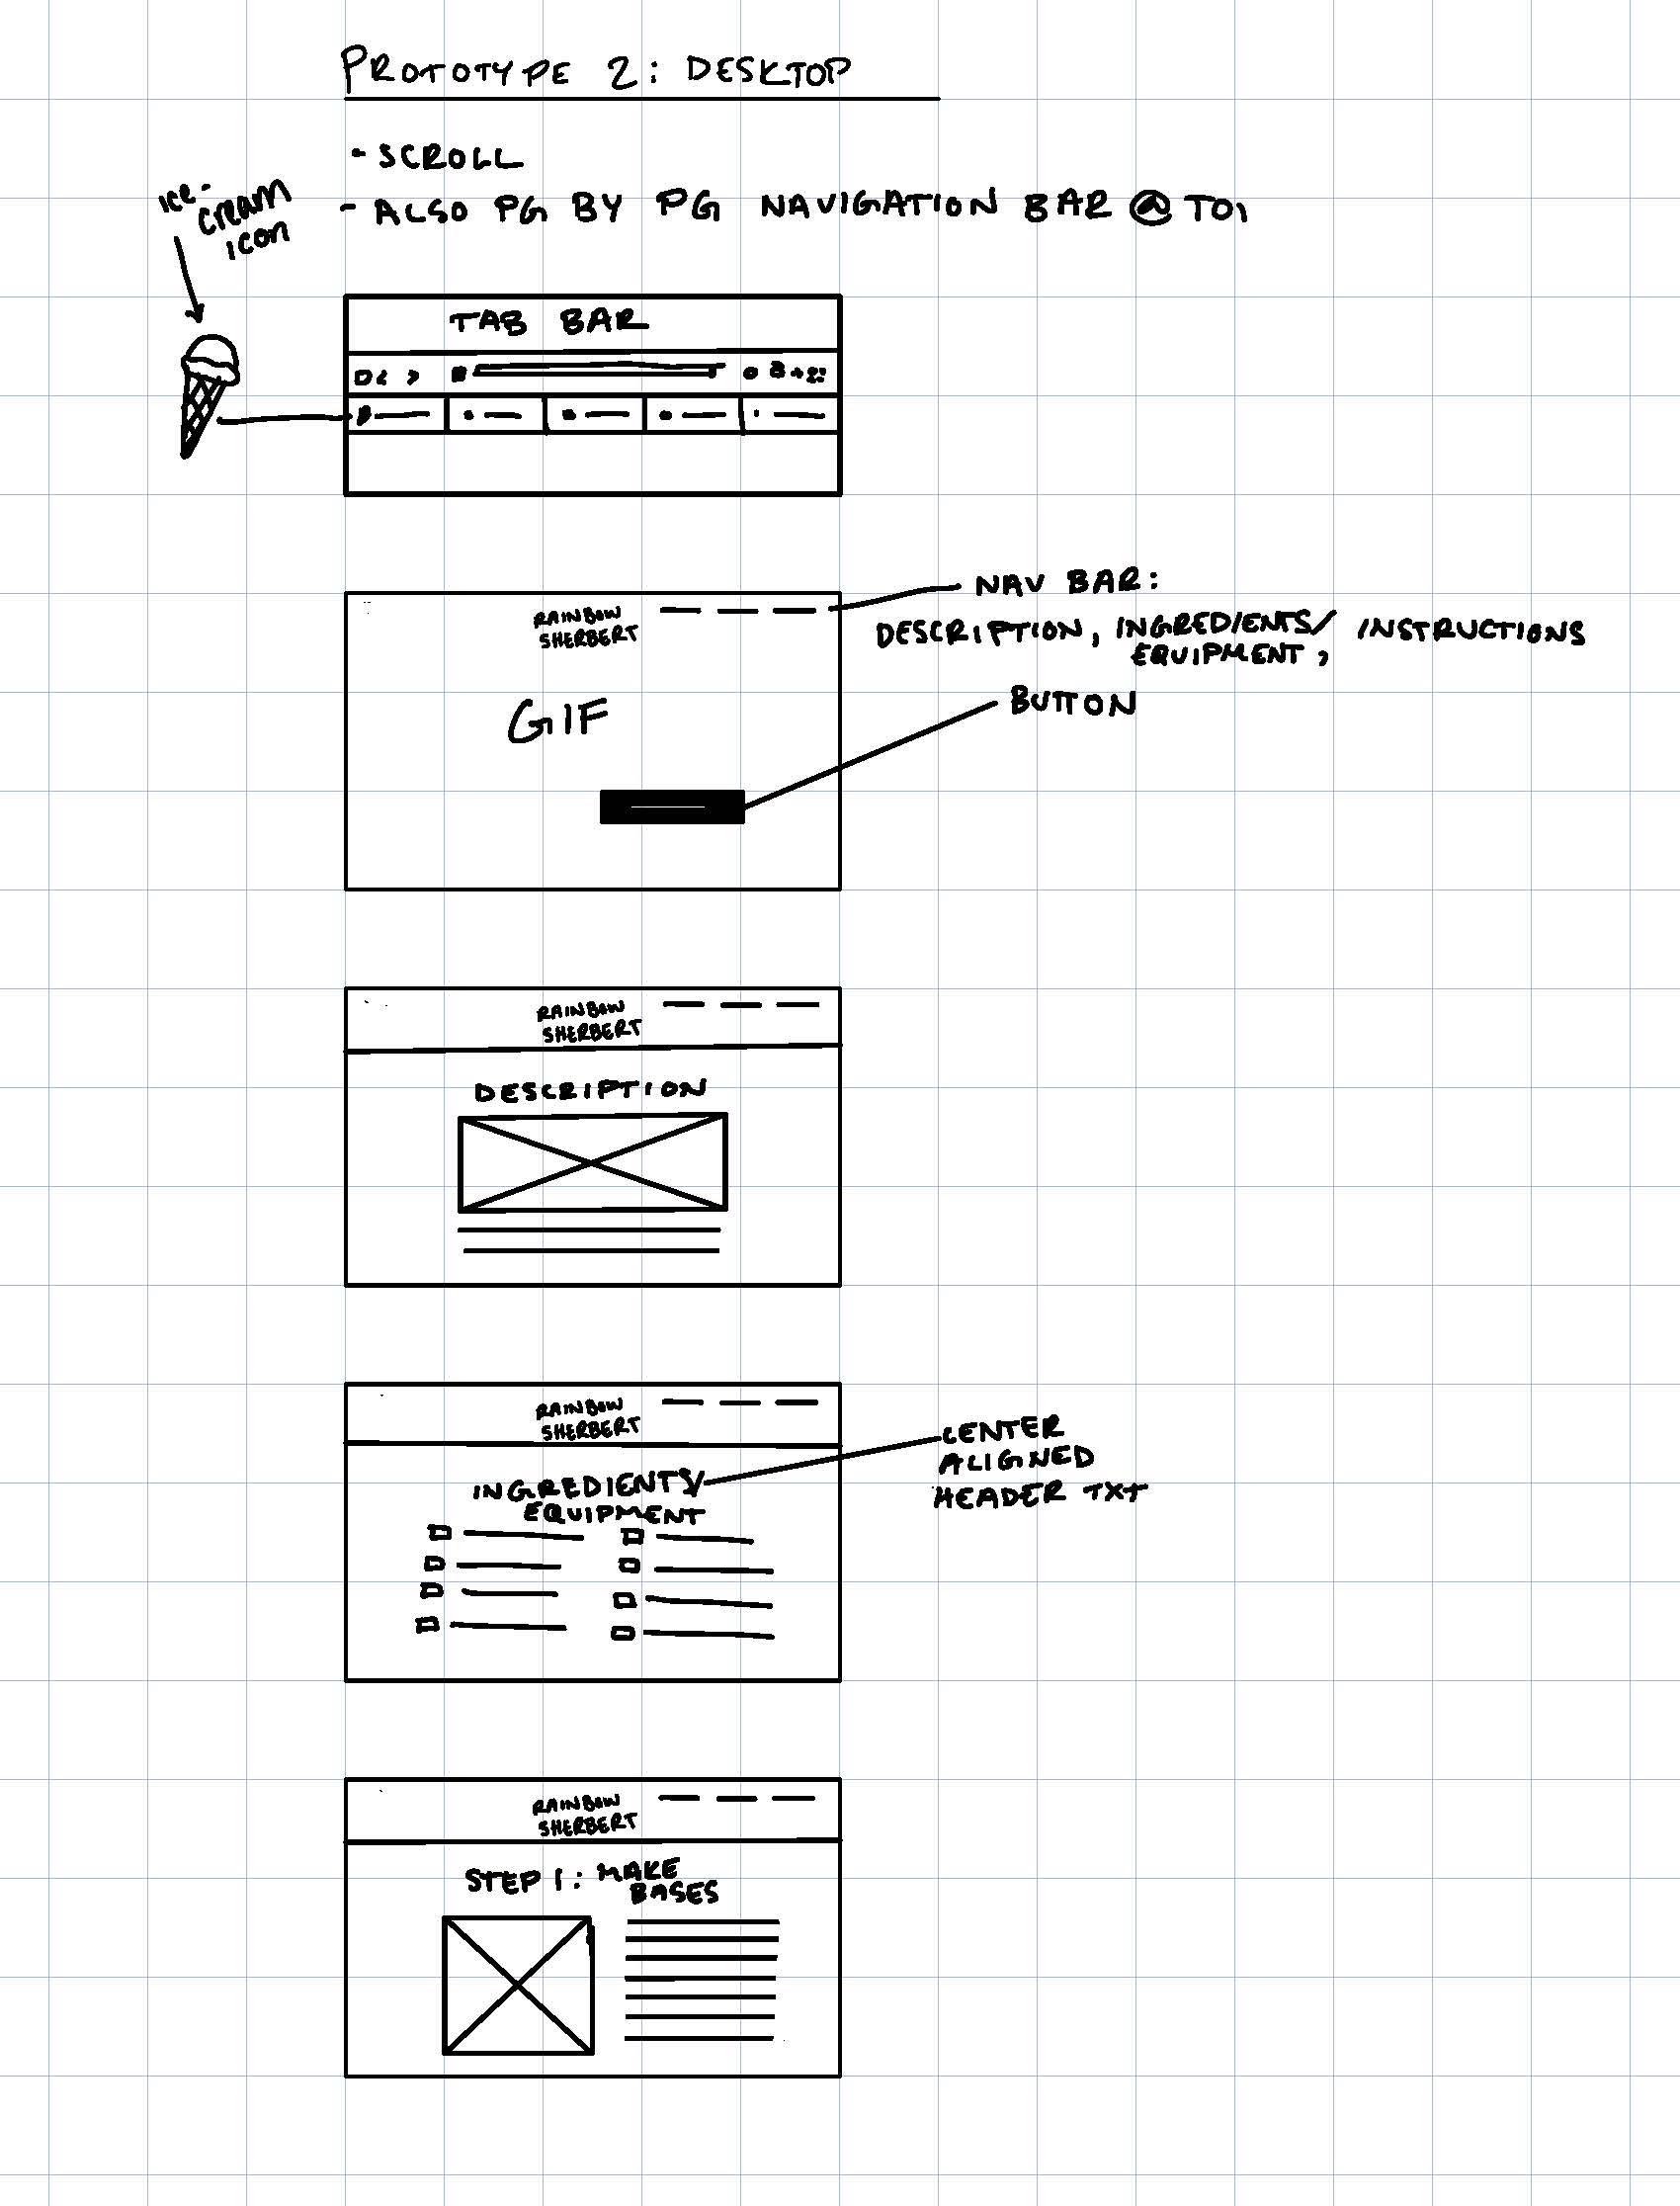 PROTOTYPE 2: DESKTOP
- SCROLL
- ALSO PG BY PG NAVIGATION BAR @
ice-
cream
icon
TAB BAR
RAINBOW
SHERBERT
NAV BAR:
DESCRIPTION, INGREDIENTS/ INSTRUCTIONS
EQUIPMENT,
GIF
BUTTON
RAINBOW
SHERBERT
DESCRIPTION
RAINBOW
SHERBERT
INGREDIENTS/
EQUIPMENT
CENTER
ALIGNED
HEADER TXT
RAINBOW
SHERBERT
STEP 1: MAKE
BASES